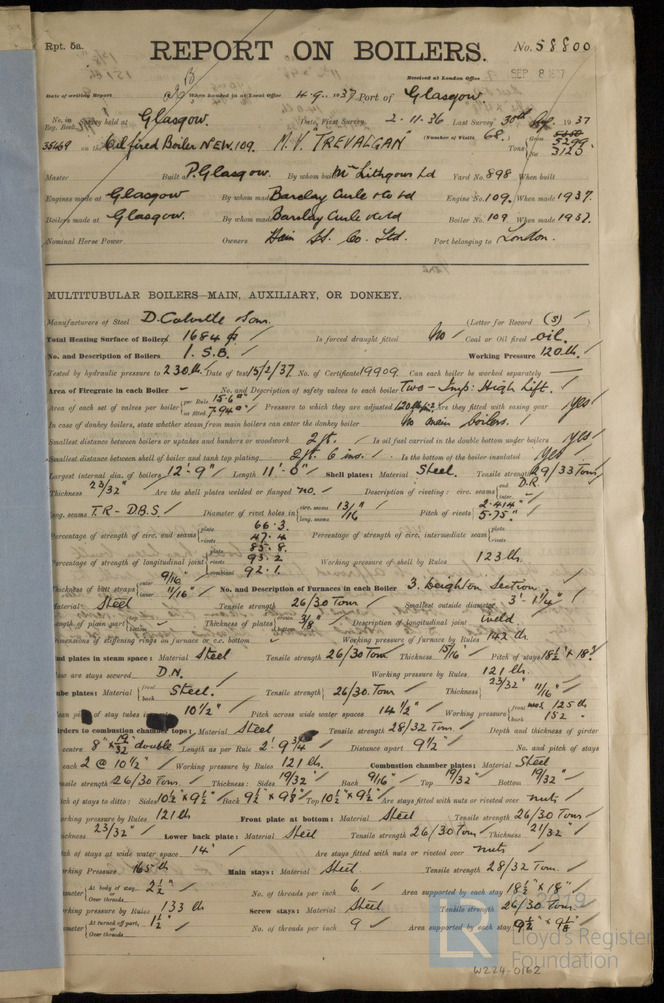 Rpt. 5a.
REPORT ON BOILERS.
No. 58800
Received at London Office
SEP 8
Date of writing Report When handed in at Local Office 4.9.1937 Port of Glasgow
No. in Reg. Book. Survey held at Glasgow. Date, First Survey 2.11.36 Last Survey 30th 1937
35469 on the Oil fired Boiler NEW. 109. M.V. "TREVALGAN" (Number of Visits 68.) Gross 5299 Tons Net 3123
Master Built at P. Glasgow. By whom built Lithgows Ld Yard No. 898 When built
Engines made at Glasgow By whom made Barclay Curle & Co Ld Engine No. 109. When made 1937.
Boilers made at Glasgow. By whom made Barclay Curle & Co Ld Boiler No. 109 When made 1937.
Nominal Horse Power Owners Hain SS. Co. Ltd. Port belonging to London.
MULTITUBULAR BOILERS MAIN, AUXILIARY, OR DONKEY.
Manufacturers of Steel D. Colville & Sons. (Letter for Record (S) )
Total Heating Surface of Boilers 1684 Is forced draught fitted No Coal or Oil fired oil.
No. and Description of Boilers 1. S.B. Working Pressure 120 lb.
Tested by hydraulic pressure to 230 lb. Date of test 15/2/37. No. of Certificate 19909 Can each boiler be worked separately —
Area of Firegrate in each Boiler - No. and Description of safety valves to each boiler Two - Imp: High Lift.
Area of each set of valves per boiler per Rule 15.6 as fitted 7.940 Pressure to which they are adjusted 120 Are they fitted with easing gear yes
In case of donkey boilers, state whether steam from main boilers can enter the donkey boiler No main boilers.
Smallest distance between boilers or uptakes and bunkers or woodwork 2 ft. Is oil fuel carried in the double bottom under boilers yes
Smallest distance between shell of boiler and tank top plating 2 ft. 6 ins. Is the bottom of the boiler insulated yes
Largest internal dia. of boilers 12'-9" Length 11'-0" Shell plates: Material Steel. Tensile strength 29/33 Tons
Thickness 23/32" Are the shell plates welded or flanged no. Description of riveting: circ. seams end D.R. inter. -
long. seams T.R - D.B.S. Diameter of rivet holes in circ. seams long. seams 13/16 Pitch of rivets 2.414" 5.75"
Percentage of strength of circ. end seams plate 66.3. rivets 47.4 Percentage of strength of circ. intermediate seam plate rivets
Percentage of strength of longitudinal joint plate 85.8. rivets 93.2 combined 92.1. Working pressure of shell by Rules 123 lb.
Thickness of butt straps outer 9/16" inner 11/16" No. and Description of Furnaces in each Boiler 3. Deighton Section.
Material Steel Tensile strength 26/30 Tons Smallest outside diameter 3'-1 1/4"
Length of plain part top bottom Thickness of plates crown bottom 3/8" Description of longitudinal joint weld
Dimensions of stiffening rings on furnace or c.c. bottom Working pressure of furnace by Rules 142 lb
End plates in steam space: Material Steel Tensile strength 26/30 Tons Thickness 15/16" Pitch of stays 18 1/2" x 18"
How are stays secured D.N. Working pressure by Rules 121 lb.
Tube plates: Material front back Steel. Tensile strength 26/30. Tons Thickness 23/32" 11/16"
Mean pitch of stay tubes in nests 10 1/2" Pitch across wide water spaces 14 1/2" Working pressure front 125 lb back 152
Girders to combustion chamber tops: Material Steel Tensile strength 28/32 Tons Depth and thickness of girder
at centre 8" x 19/32" double Length as per Rule 2'.9 3/4" Distance apart 9 1/2" No. and pitch of stays
in each 2 @ 10 1/2" Working pressure by Rules 121 lb. Combustion chamber plates: Material Steel
Tensile strength 26/30 Tons Thickness: Sides 19/32" Back 9/16" Top 19/32" Bottom 19/32"
Pitch of stays to ditto: Sides 10 1/2" x 9 1/2" Back 9 1/2" x 9 1/8" Top 10 1/2" x 9 1/2" Are stays fitted with nuts or riveted over nuts
Working pressure by Rules 121 lb Front plate at bottom: Material Steel Tensile strength 26/30 Tons
Thickness 23/32" Lower back plate: Material Steel Tensile strength 26/30 Tons Thickness 21/32"
Pitch of stays at wide water space 14" Are stays fitted with nuts or riveted over nuts
Working Pressure 165 lb Main stays: Material Steel Tensile strength 28/32 Tons.
Diameter At body of stay, 2 1/2" Over threads No. of threads per inch 6. Area supported by each stay 18 1/2" x 18"
Working pressure by Rules 133 lb Screw stays: Material Steel Tensile strength 26/30 Tons
Diameter At turned off part, 1 1/2" Over threads No. of threads per inch 9 Area supported by each stay 9 1/2" x 9 1/8"
LR
Lloyd's Register
Foundation
W224-0162